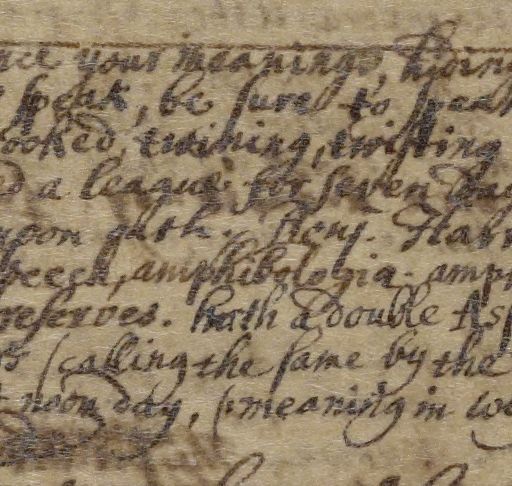 your meanings, hiding
speak, be sure to speak
crooked, twining, twisting
a league for seven day
upon oath.
speech, amphibologia. amp
reserves. hath a double Asp
(calling the same by the
noon day, (meaning in